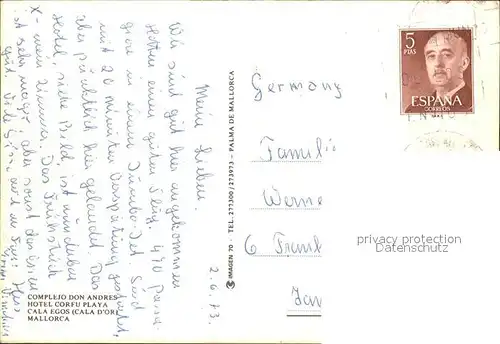 Meine Lieben.
2.6.73.
Wir sind gut hier angekommen
Hatten einen guten Flug. 490 Passa-
giere in einem Jumbo-Jet. Sind
mit 20 minuten Verspätung gestartet,
aber pünktlich hier gelandet. Das
Hotel, siehe Bild, ist wunderbar
X - unser Zimmer. Das Frühstück
ist sehr mager aber sonst das Essen
gut. Viele Grüße
COMPLEJO DON ANDRES
HOTEL CORFU PLAYA
CALA EGOS (CALA D'OR)
MALLORCA
IMAGEN 70 - TEL. 277300/273973 - PALMA DE MALLORCA
5
PTAS
ESPAÑA
CORREOS
Germany
Familie
Werne
6 Frankf
privacy protection
Datenschutz